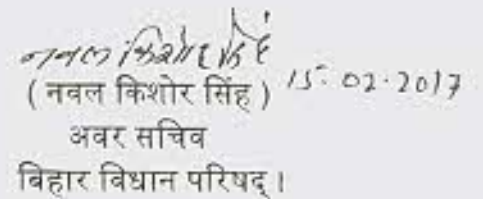 नवल किशोर सिंह
( नवल किशोर सिंह ) 15.02.2017
अवर सचिव
बिहार विधान परिषद् ।